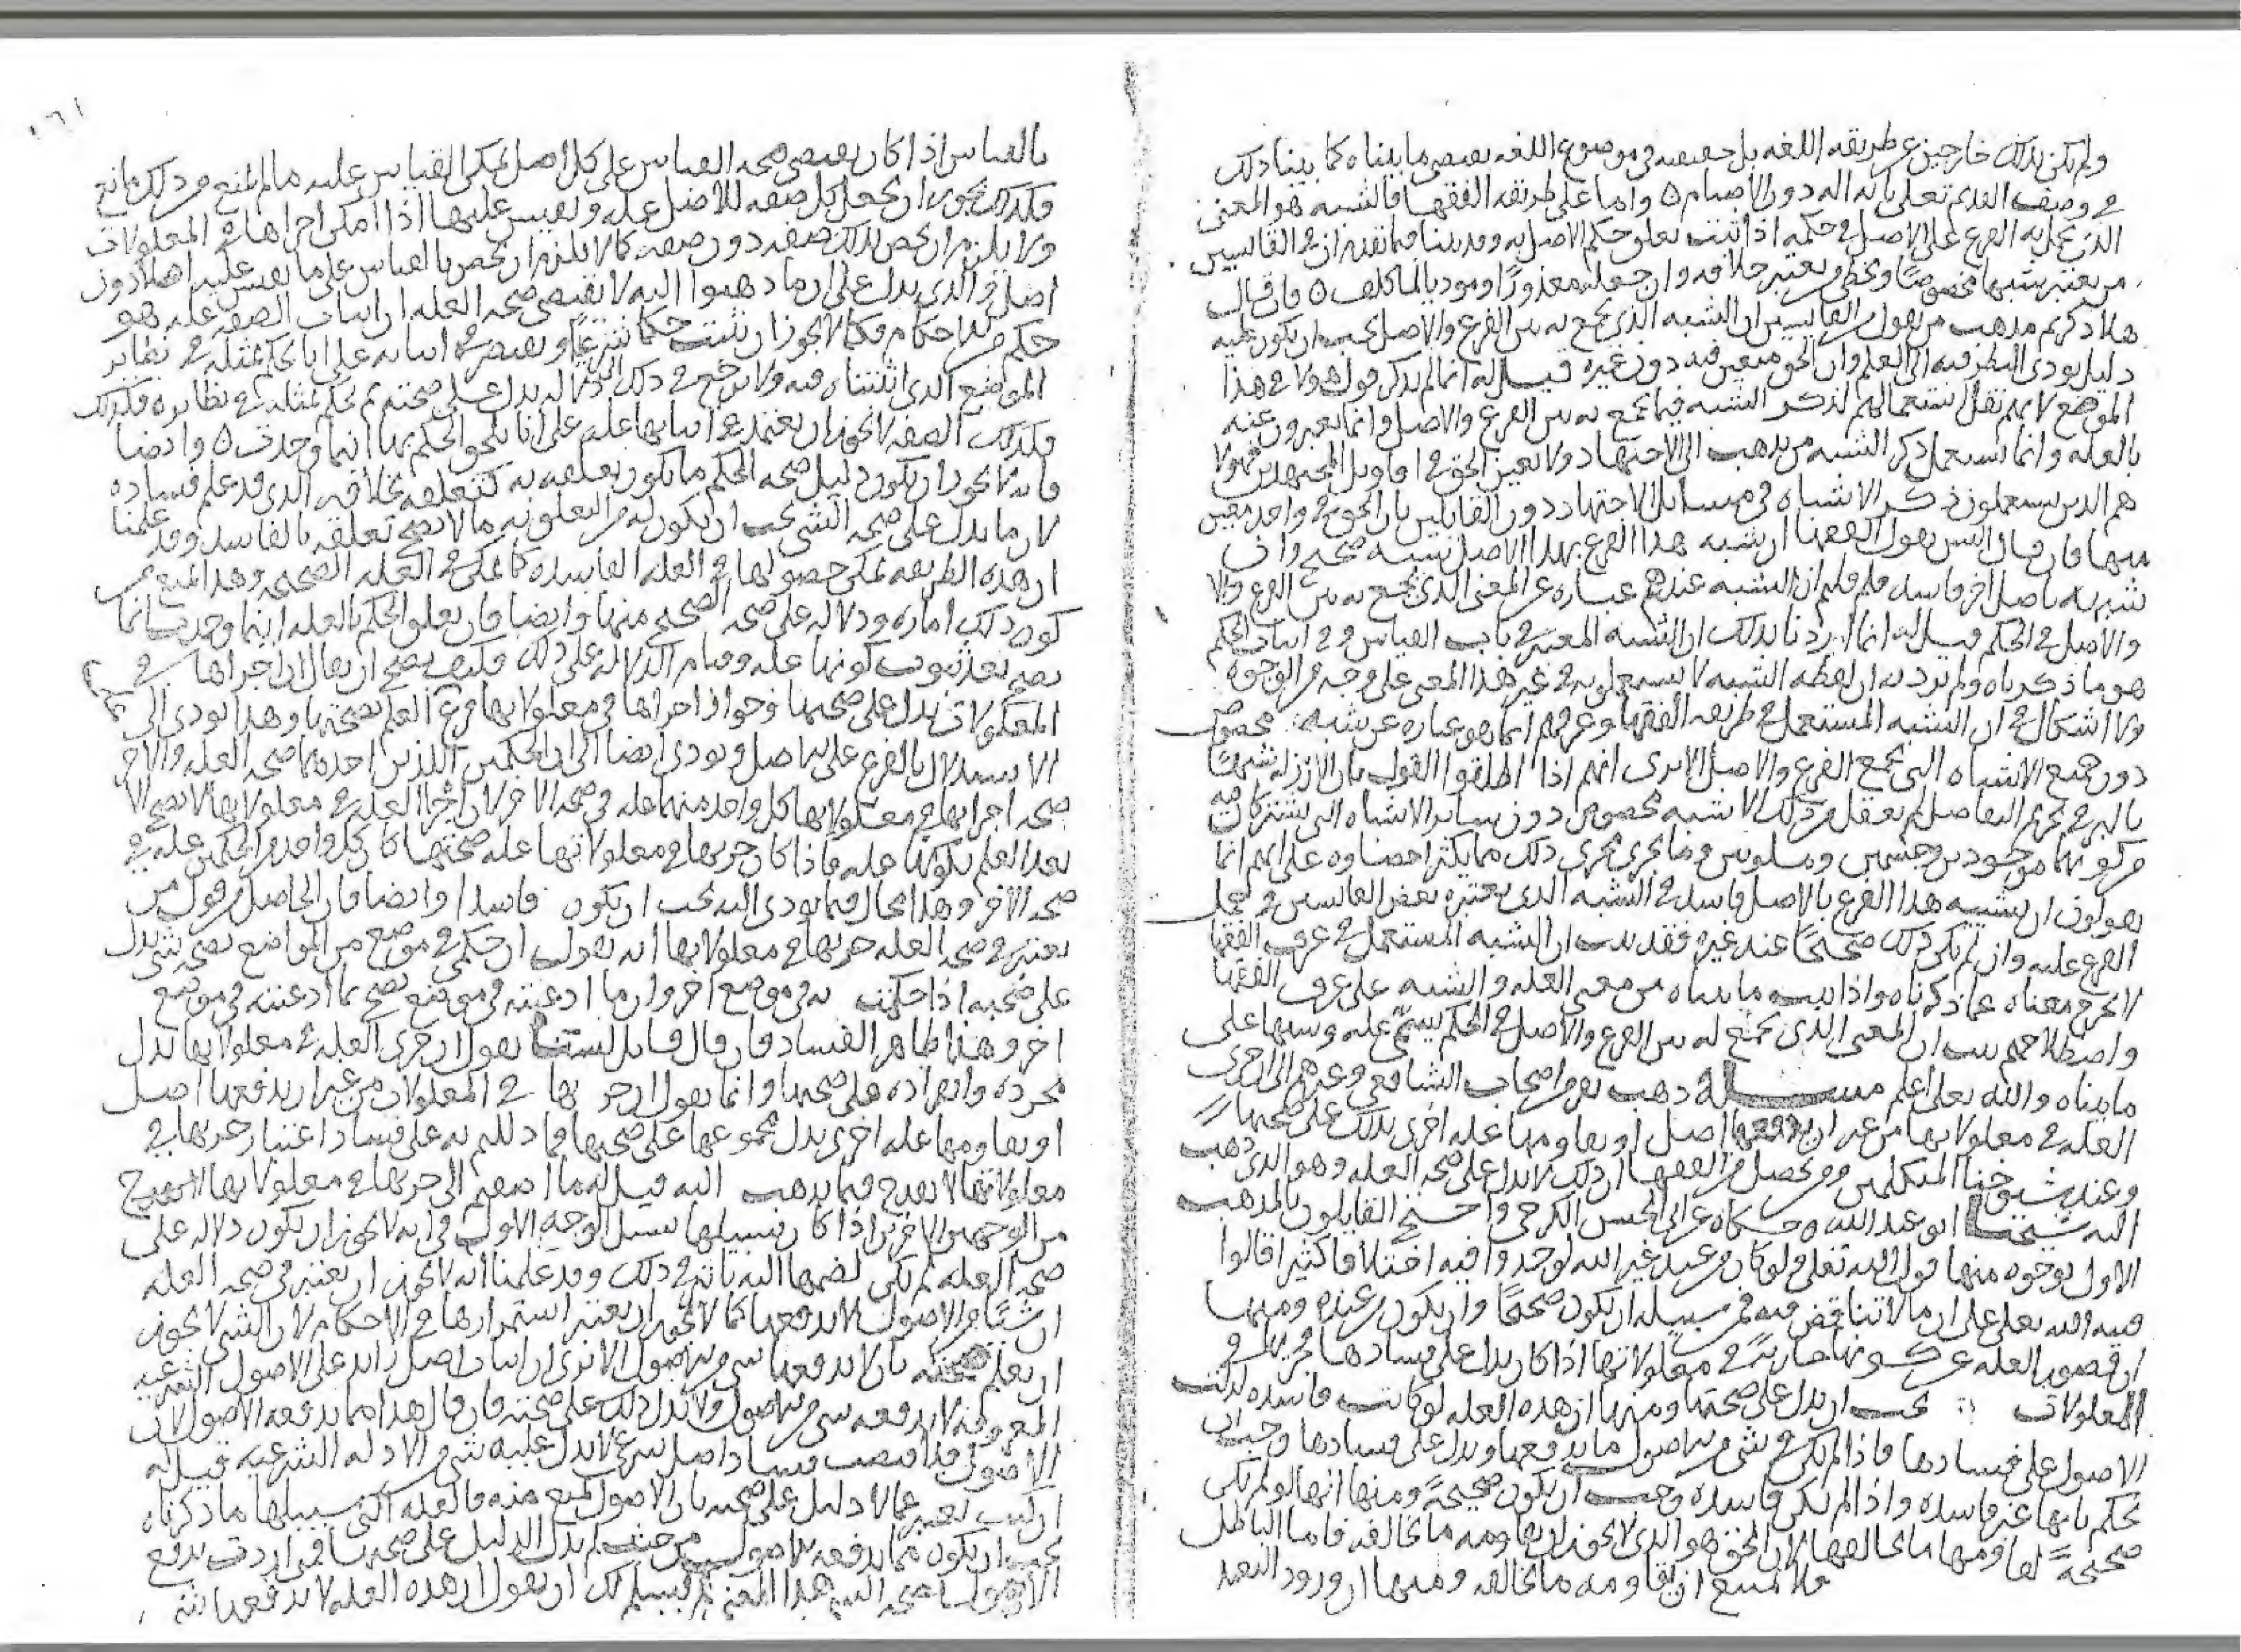 ولم يكن بذلك خارجين عن طريقه اللغه بل حقيقته في موضوع اللغه يقتضي ما بيناه كما بينا ذلك
في وصف القديم تعلى بانه اله دون الاصنام ٥ واما على طريقه الفقها فالشبه هو المعنى
الذي يحمل به الفرع على الاصل في حكمه اذا ثبت تعلق حكم الاصل به وقد بينا فيما تقدم ان في القايسين
من يعتبر شبها مخصوصًا ويخطي من يعتبر خلافه وان جعله معذورًا وموديا لما كلف ٥ فان قال
هلا ذكرتم مذهب من يقول من القايسين ان الشبه الذي يجمع به بين الفرع والاصل يجب ان يكون عليه
دليل يودي النظر فيه الى العلم وان الحق متعين فيه دون غيره قيل له انما لم نذكر قول هولا في هذا
الموضع لانه يقل استعمالهم لذكر الشبه فيما يجمع به بين الفرع والاصل وانما يعبرون عنه
بالعله وانما يستعمل ذكر الشبه من يذهب الى الاجتهاد ولا يعين الحق في اقاويل المجتهدين فهولا
هم الذين يستعملون ذكر الاشباه في مسايل الاجتهاد دون القايلين بان الحق في واحد معين
منها فان قال اليس يقول الفقها ان شبه هذا الفرع بهذا الاصل شبه صحيح وان
شبهه باصل اخر فاسد فلم قلتم ان الشبه عندهم عباره عن المعنى الذي يجمع به بين الفرع والا
والاصل في الحكم قيل له انما اردنا بذلك ان الشبه المعتبر في باب القياس وفي اثبات الحكم
هو ما ذكرناه ولم نرد به ان لفظه الشبه لا يستعملونه في غير هذا المعنى على وجه من الوجوه
ولا اشكال في ان الشبه المستعمل في طريقه الفقها وعرفهم انما هو عباره عن شبه مخصوص
دون جميع الاشباه التي تجمع الفرع والاصل الا ترى انهم اذا اطلقوا القول بان الارز له شبهًا
بالبر في تحريم التفاضل لم يعقل من ذلك الا شبه مخصوص دون ساير الاشباه التي يشتركان فيه
من كونهما موجودين وجسمين وملونين وما يجري مجرى ذلك مما يكثر احصاوه على انهم انما
يقولون ان تشبيه هذا الفرع بالاصل فاسد في الشبه الذي يعتبره بعض القايسين في حمل
الفرع عليه وان لم يكن ذلك صحيحًا عند غيره فقد ثبت ان الشبه المستعمل في عرف الفقها
لا يخرج معناه عما ذكرناه واذا ثبت ما بيناه من معنى العله والشبه على عرف الفقها
واصطلاحهم ثبت ان المعنى الذي يجمع له بين الفرع والاصل في الحكم يسمى عله وشبها على
ما بيناه والله تعلى اعلم مسـله ذهب قوم من اصحاب الشافعي وغيرهم الى ان جري
العله في معلولاتها من غير ان يدفعها اصل او يقاومها عله اخرى يدلك على صحتها
وعند شيوخنا المتكلمين ومن يحصل من الفقها ان ذلك لا يدل على صحه العله وهو الذي ذهب
اليه شيخنا ابو عبد الله وحكاه عن ابي الحسن الكرخي واحتج القايلون بالمذهب
الاول بوجوه منها قول الله تعلى ولو كان من عند غير الله لوجدوا فيه اختلافا كثيرا قالوا
فنبه الله تعلى على ان ما لا تناقض فيه فمن سبيله ان يكون صحيحًا وان يكون من عنده ومنها
ان قصور العله عن كونها جاريةً في معلولاتها اذا كان يدل على فسادها فجريها في
المعلولات يجب ان يدل على صحتها ومنها ان هذه العله لو كانت فاسده لدلت
الاصول على فسادها فاذا لم يكن في شي من الاصول ما يدفعها ويدل على فسادها وجب ان
نحكم بانها غير فاسده واذا لم تكن فاسده وجب ان يكون صحيحةً ومنها انها لو لم تكن
صحيحةً لقاومها ما يخالفها لان الحق هو الذي لا يجوز ان يقاومه ما يخالفه فاما الباطل
فلا يمتنع ان يقاومه ما يخالفه ومنها ان ورود التعبد
١٦١
بالقياس اذا كان يقتضي صحه القياس على كل اصل يمكن القياس عليه ما لم يمنع من ذلك مانع
فكذلك يجوز ان يجعل كل صفه للاصل عله ونقيس عليها اذا امكن اجراها في المعلولات
ولا يلزم ان يخص بذلك صفه دون صفه كما لا يلزم ان يخص بالقياس على ما نقيس عليه اصلا دون
اصل والذي يدل على ان ما ذهبوا اليه لا يقتضي صحه العله ان اثبات الصفه عله هو
حكم من الاحكام فكما لا يجوز ان نثبت حكما شرعيًا ونقتصر في اثباته على انا نحكم بمثله في نظاير
الموضع الذي اثبتناه فيه ولا نرجع في ذلك الى دلاله تدل على صحته ثم نحكم بمثله في نظايره فكذلك
فكذلك الصفه لا يجوز ان نعتمد في اثباتها عله على انا نلحق الحكم بها اينما وجدت ٥ وايضا
فانه لا يجوز ان يكون دليل صحه الحكم ما يكون تعلقه به كتعلقه بخلافه الذي قد علم فساده
لان ما يدل على صحه الشي يجب ان يكون له من التعلق به ما لا يصح تعلقه بالفاسد وقد علمنا
ان هذه الطريقه يمكن حصولها في العله الفاسده كما يمكن في العله الصحيحه وهذا يمنع من
كون ذلك اماره ودلاله على صحه الصحيح منها وايضا فان تعلق الحكم بالعله اينما وجدت انما
يصح بعد ثبوت كونها عله وقيام الدلاله على ذلك فكيف يصح ان يقال ان اجراها في
المعلولات يدل على صحتها وجواز اجراها في معلولاتها فرع العلم بصحتها وهذا يودي الى
الاستدلال بالفرع على الاصل ويودي ايضا الى ان الحكمين اللذين احدهما صحه العله والاخر
صحه اجرايها في معلولاتها كل واحد منهما عله في صحه الاخر لان اجرا العله في معلولاتها لا يصح الا
بعد العلم بكونها عله فاذا كان جريها في معلولاتها عله صحتها كان كل واحد من الحكمين عله في
صحه الاخر وهذا محال فما يودي اليه يجب ان يكون فاسدا وايضا فان الحاصل من قول من
يعتبر في صحه العله جريها في معلولاتها انه يقول ان حكمي في موضع من المواضع بصحه شي يدل
على صحته اذا حكمت به في موضع اخر وان ما ادعيته في موضع يصح بما ادعيته في موضع
اخر وهذا ظاهر الفساد فان قال قايل لسنا نقول ان جري العله في معلولاتها يدل
بمجرده وانفراده على صحتها وانما نقول ان جريها في المعلولات من غير ان يدفعها اصل
او يقاومها عله اخرى يدل مجموعها على صحتها فما دللتم به على فساد اعتبار جريها في
معلولاتها لا يقدح فيما نذهب اليه قيل له ما اضفتم الى جريها في معلولاتها
من الوجهين الاخرين اذا كان سبيلها سبيل الوجه الاول في انه لا يجوز ان يكون دلاله على
صحه العله لم يكن لضمها اليه تاثير في ذلك وقد علمنا انه لا يجوز ان يعتبر في صحه العله
ان شيًا من الاصول لا يدفعها كما لا يجوز ان يعتبر استمرارها في الاحكام لان الشي لا يجوز
ان يعلم صحته بان لا يدفعها شي من الاصول الا ترى ان اثبات اصل زايد على الاصول الشرعيه
المعروفه لا يدفعه شي من الاصول ولا يدل ذلك على صحته فان قال هذا مما يدفعه الاصول لان
الاصول قد اقتضت فساد اصل شرعي لا يدل عليه شي من الادله الشرعيه قيل له
ان كنت تعبر عما لا دليل على صحته بان الاصول تمنع منه فالعله التي سبيلها ما ذكرناه
يجب ان يكون مما يدفعه الاصول من حيث لم يدل الدليل على صحتها فمن اردت بدفع
الاصول هذا المعنى لم نسلم لك ان نقول ان هذه العله لا يدفعها شي